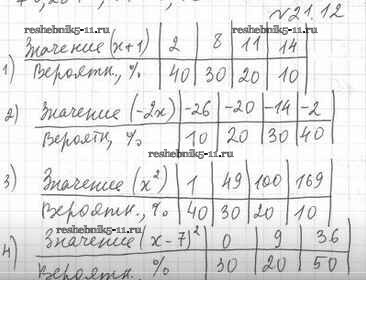 №21.12
reshebnik5-11.ru
1) Значение (x+1) | 2 | 8 | 11 | 14
Вероятн., % | 40 | 30 | 20 | 10
reshebnik5-11.ru
2) Значение (-2x) | -26 | -20 | -14 | -2
Вероятн., % | 10 | 20 | 30 | 40
reshebnik5-11.ru
3) Значение (x²) | 1 | 49 | 100 | 169
Вероятн., % | 40 | 30 | 20 | 10
reshebnik5-11.ru
4) Значение (x-7)² | 0 | 9 | 36
Вероятн. % | 30 | 20 | 50